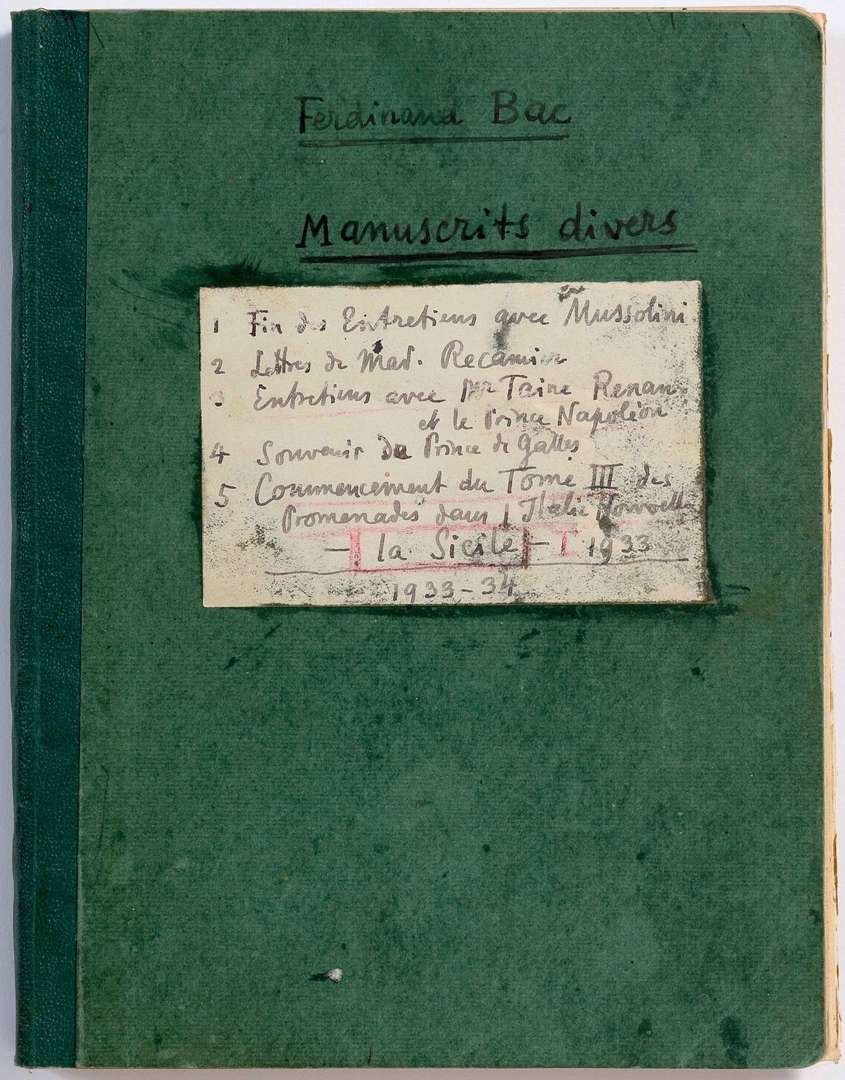 Ferdinand Bac
Manuscrits divers
1 Fin des Entretiens avec Mussolini
2 Lettres de Mad. Recamier
3 Entretiens avec Mr Taine Renan
et le Prince Napoléon
4 Souvenir du Prince de Galles
5 Commencement du Tome III des
Promenades dans l'Italie Nouvelle
– la Sicile – 1933
1933-34